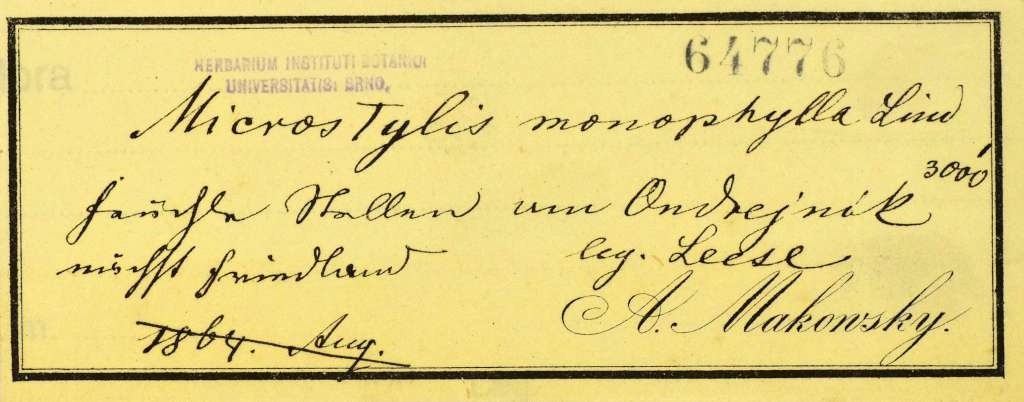 64776
HERBARIUM INSTITUTI BOTANICI
UNIVERSITATIS: BRNO,
Microstylis monophylla Lind
feuchte Stellen am Ondrejnik 3000'
nächst Friedland leg. Leese
1864. Aug. A. Makowsky.